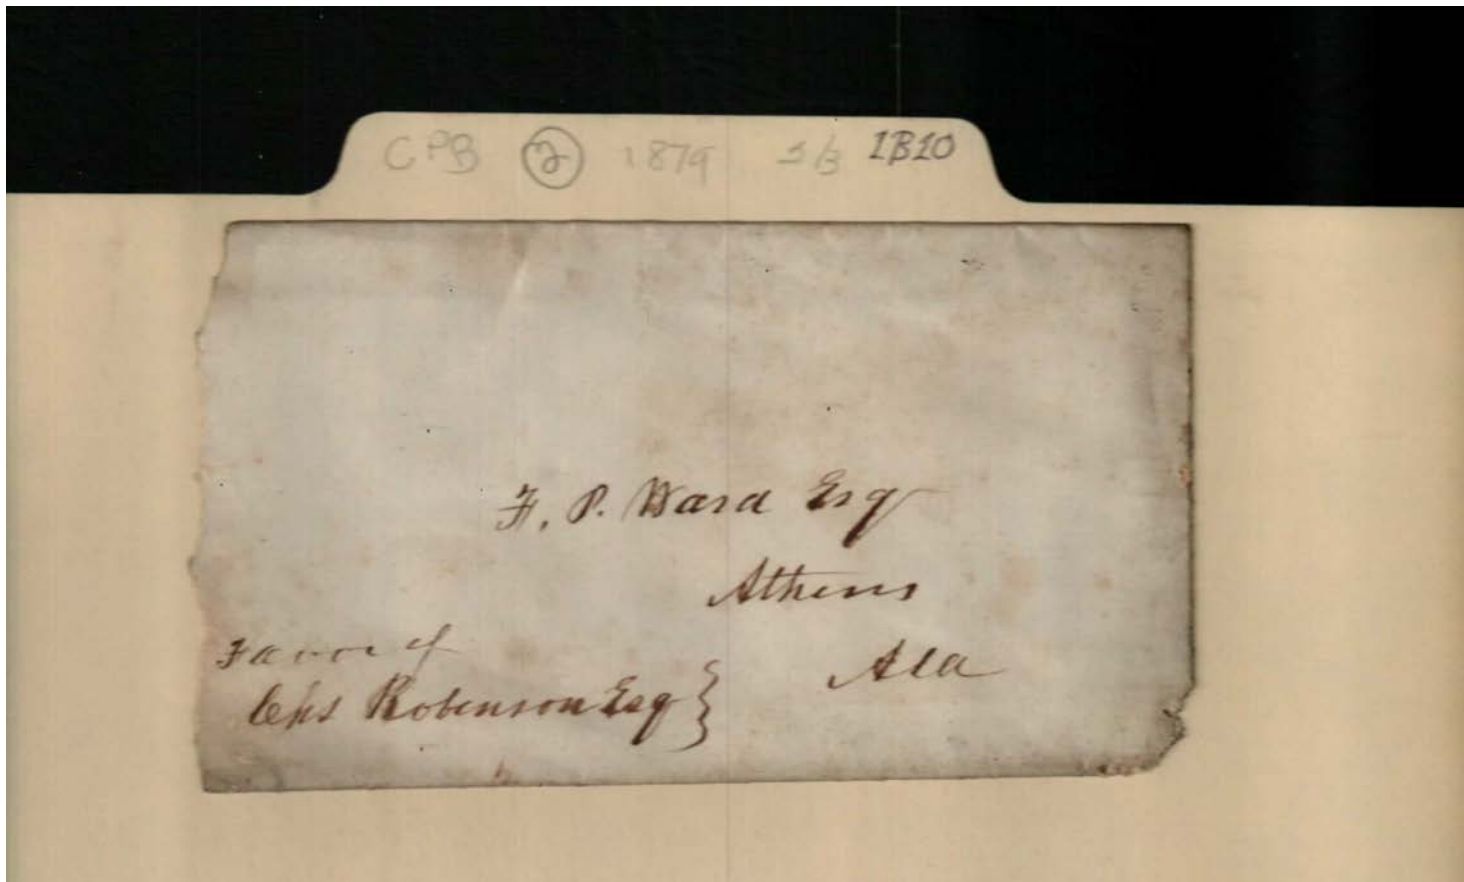 CPB 2 1879 1B10
F. P. Ward Esq
Athens
Ala
Favor of
Chs Robinson Esq